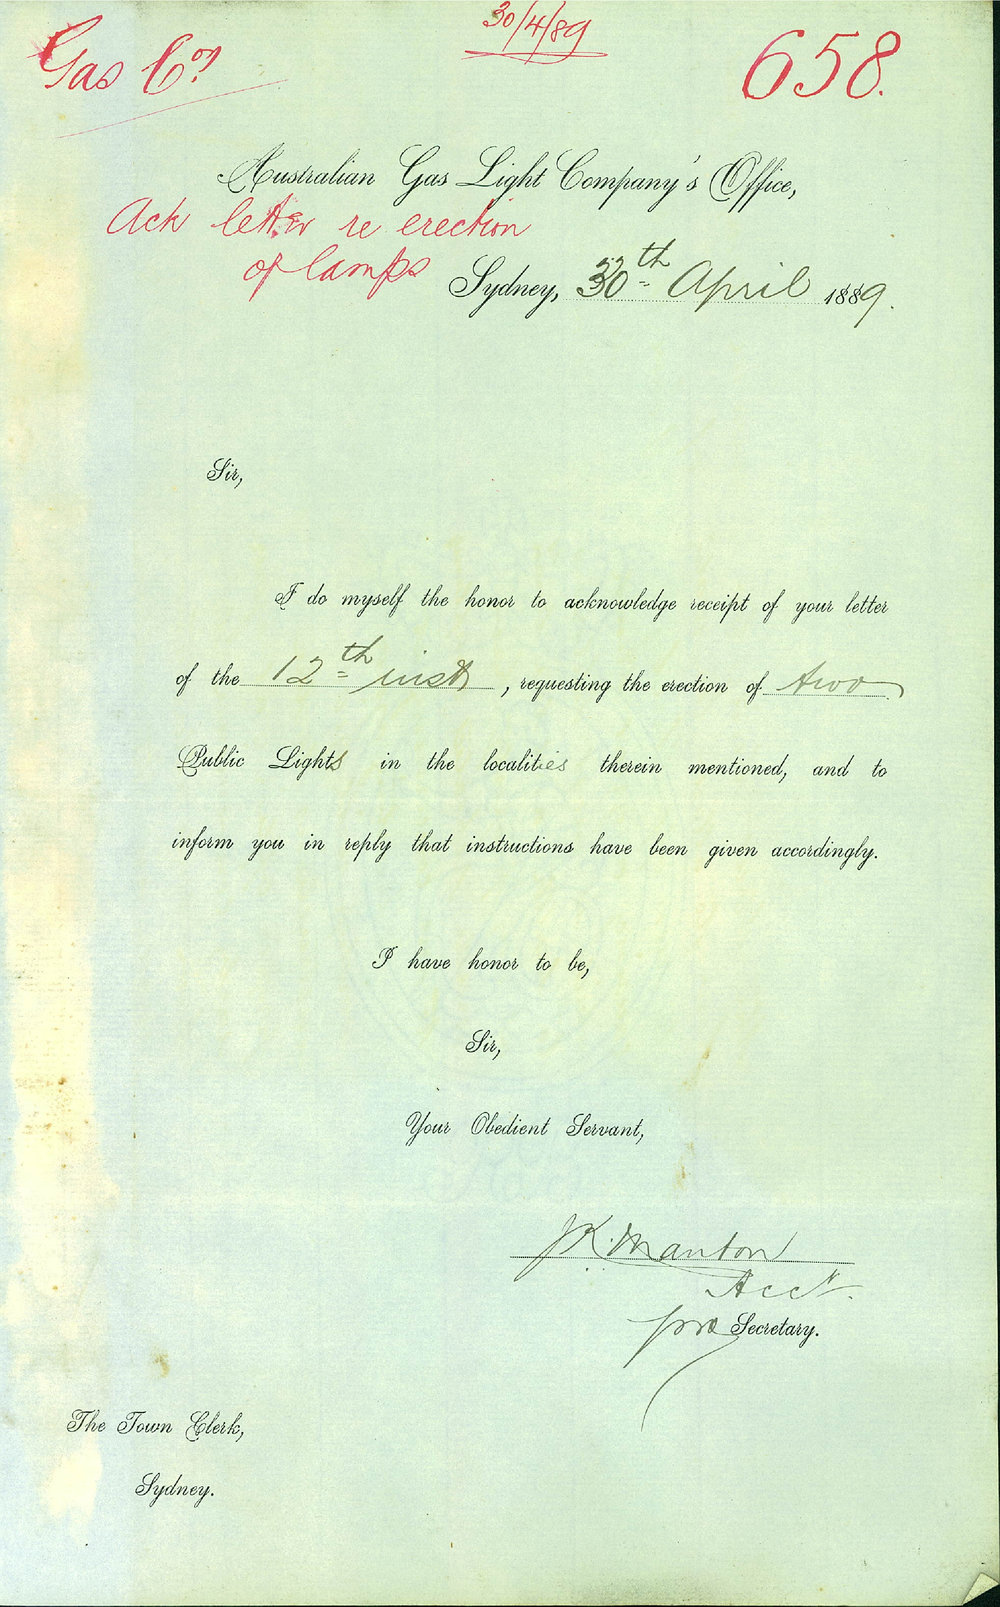 30/4/89
Gas Co?
658.
Australian Gas Light Company's Office,
Ack letter re erection
of lamps
Sydney, 30th April 1889.
Sir,
I do myself the honor to acknowledge receipt of your letter
of the 12th inst, requesting the erection of two
Public Lights in the localities therein mentioned, and to
inform you in reply that instructions have been given accordingly.
I have honor to be,
Sir,
Your Obedient Servant,
JK. Manton
Acct.
pro Secretary.
The Town Clerk,
Sydney.